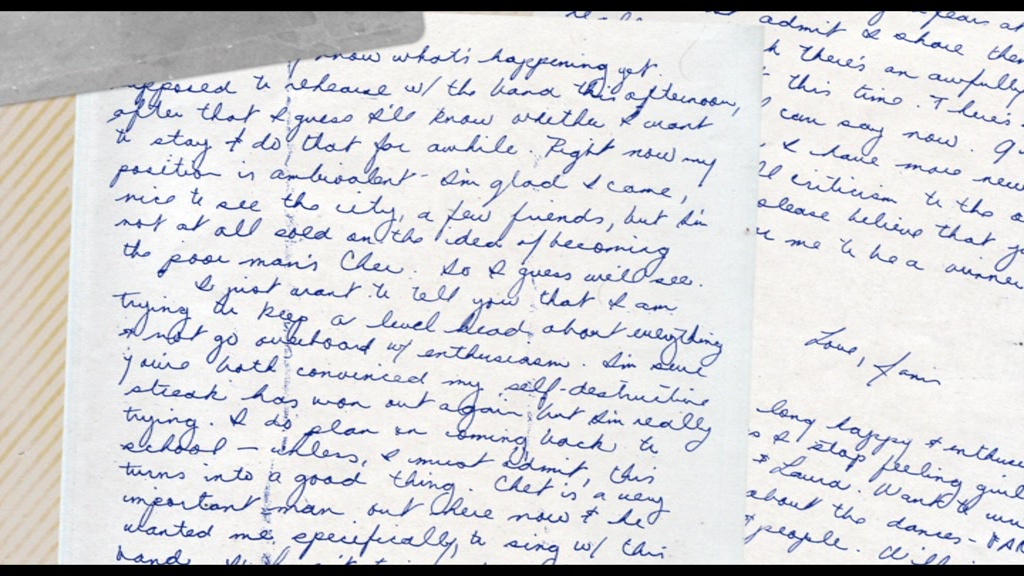 know what's happening yet.
supposed to rehearse w/ the band this afternoon,
after that I guess I'll know whether I want
to stay & do that for awhile. Right now my
position is ambivalent - I'm glad I came,
nice to see the city, a few friends, but I'm
not at all sold on the idea of becoming
the poor man's Cher. So I guess we'll see.
I just want to tell you that I am
trying to keep a level head about everything
& not go overboard w/ enthusiasm. I'm sure
you're both convinced my self-destructive
streak has won out again but I'm really
trying. I do plan on coming back to
school - unless, I must admit, this
turns into a good thing. Chet is a very
important man out here now & he
wanted me, specifically, to sing w/ this
band.
admit I share them
there's an awfully
this time. There's
I can say now.
I have more news
criticism to the
please believe that
me to be a winner
Love, Janis
long happy &
I stop feeling
& Laura. Want to
about the dances-
people.